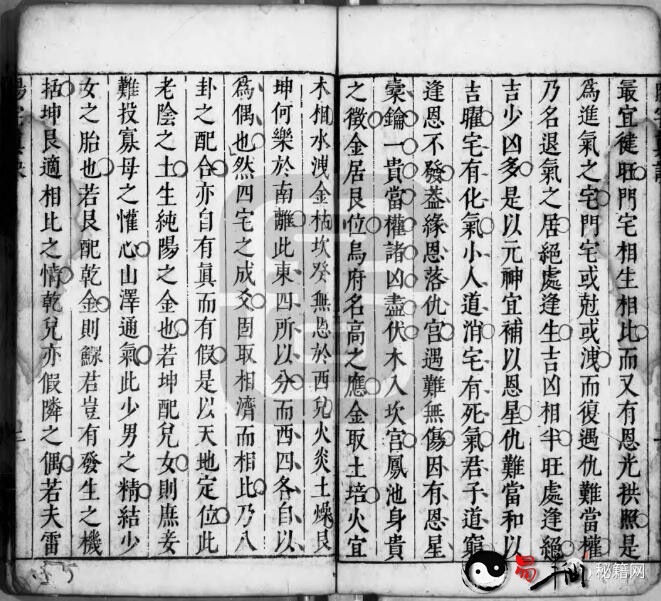 最宜徒旺門宅相生相比而又有恩光拱照是
為進氣之宅門宅或尅或洩而復遇仇難當權
乃名退氣之居絕處逢生吉凶相半旺處逢絕
吉少凶多是以元神宜補以恩星仇難當和以
吉曜宅有化氣小人道消宅有死氣君子道窮
逢恩不發蓋緣恩落仇宮遇難無傷因有恩星
槖鑰一貴當權諸凶盡伏木入坎宮鳳池身貴
之徵金居艮位烏府名高之應金取土培火宜
木相水洩金枯坎癸無思於西兌火炎土燥艮
坤何樂於南離此東四所以分而西四各自以
為偶也然四宅之成爻固取相濟而相比乃八
卦之配合亦自有眞而有假是以天地定位此
老陰之土生純陽之金也若坤配兌女則庶妾
難投寡母之懽心山澤通氣此少男之精結少
女之胎也若艮配乾金則鰥君豈有發生之機
括坤艮適相比之情乾兌亦假隣之偶若夫雷
易 秘籍网